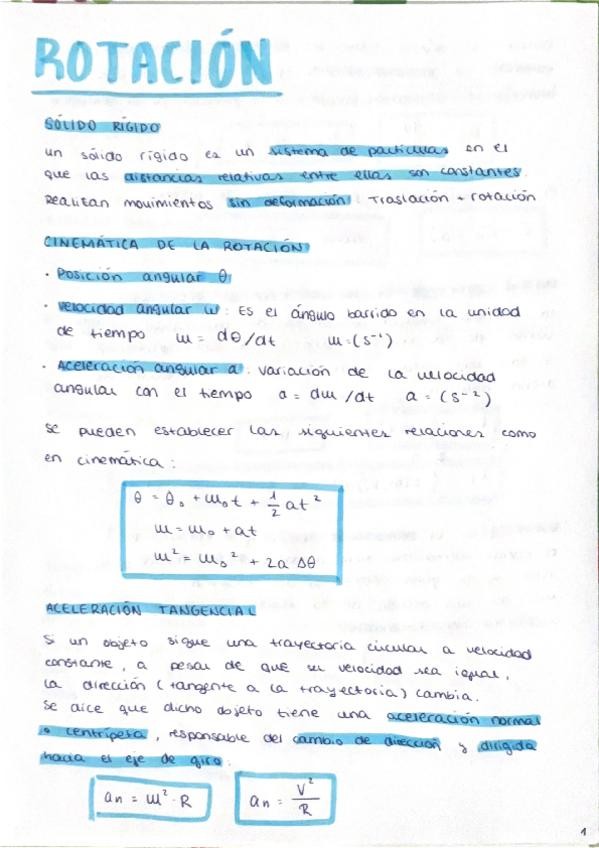 ROTACIÓN
SÓLIDO RÍGIDO
un sólido rígido es un sistema de partículas en el
que las distancias relativas entre ellas son constantes.
Realizan movimientos sin deformación: Traslación + rotación
CINEMÁTICA DE LA ROTACIÓN
· Posición angular θ
· Velocidad angular ω: Es el ángulo barrido en la unidad
de tiempo ω = dθ/dt ω = (s⁻¹)
· Aceleración angular a: variación de la velocidad
angular con el tiempo a = dω/dt a = (s⁻²)
Se pueden establecer las siguientes relaciones como
en cinemática:
θ = θ₀ + ω₀t + 1/2 at²
ω = ω₀ + at
ω² = ω₀² + 2a Δθ
ACELERACIÓN TANGENCIAL
Si un objeto sigue una trayectoria circular a velocidad
constante, a pesar de que su velocidad sea igual,
la dirección (tangente a la trayectoria) cambia.
Se dice que dicho objeto tiene una aceleración normal
o centrípeta, responsable del cambio de dirección y dirigida
hacia el eje de giro:
an = ω² · R an = V²/R
1